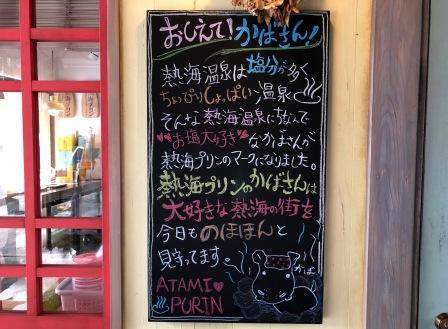 おしえて！かばさん！
熱海温泉は塩分が多く
ちょっぴりしょっぱい温泉
そんな熱海温泉にちなんで
"お塩大好き"なかばさんが
熱海プリンのマークになりました。
熱海プリンのかばさんは
大好きな熱海の街を
今日ものほほんと
見守ってます。
ATAMI
PURIN
かば